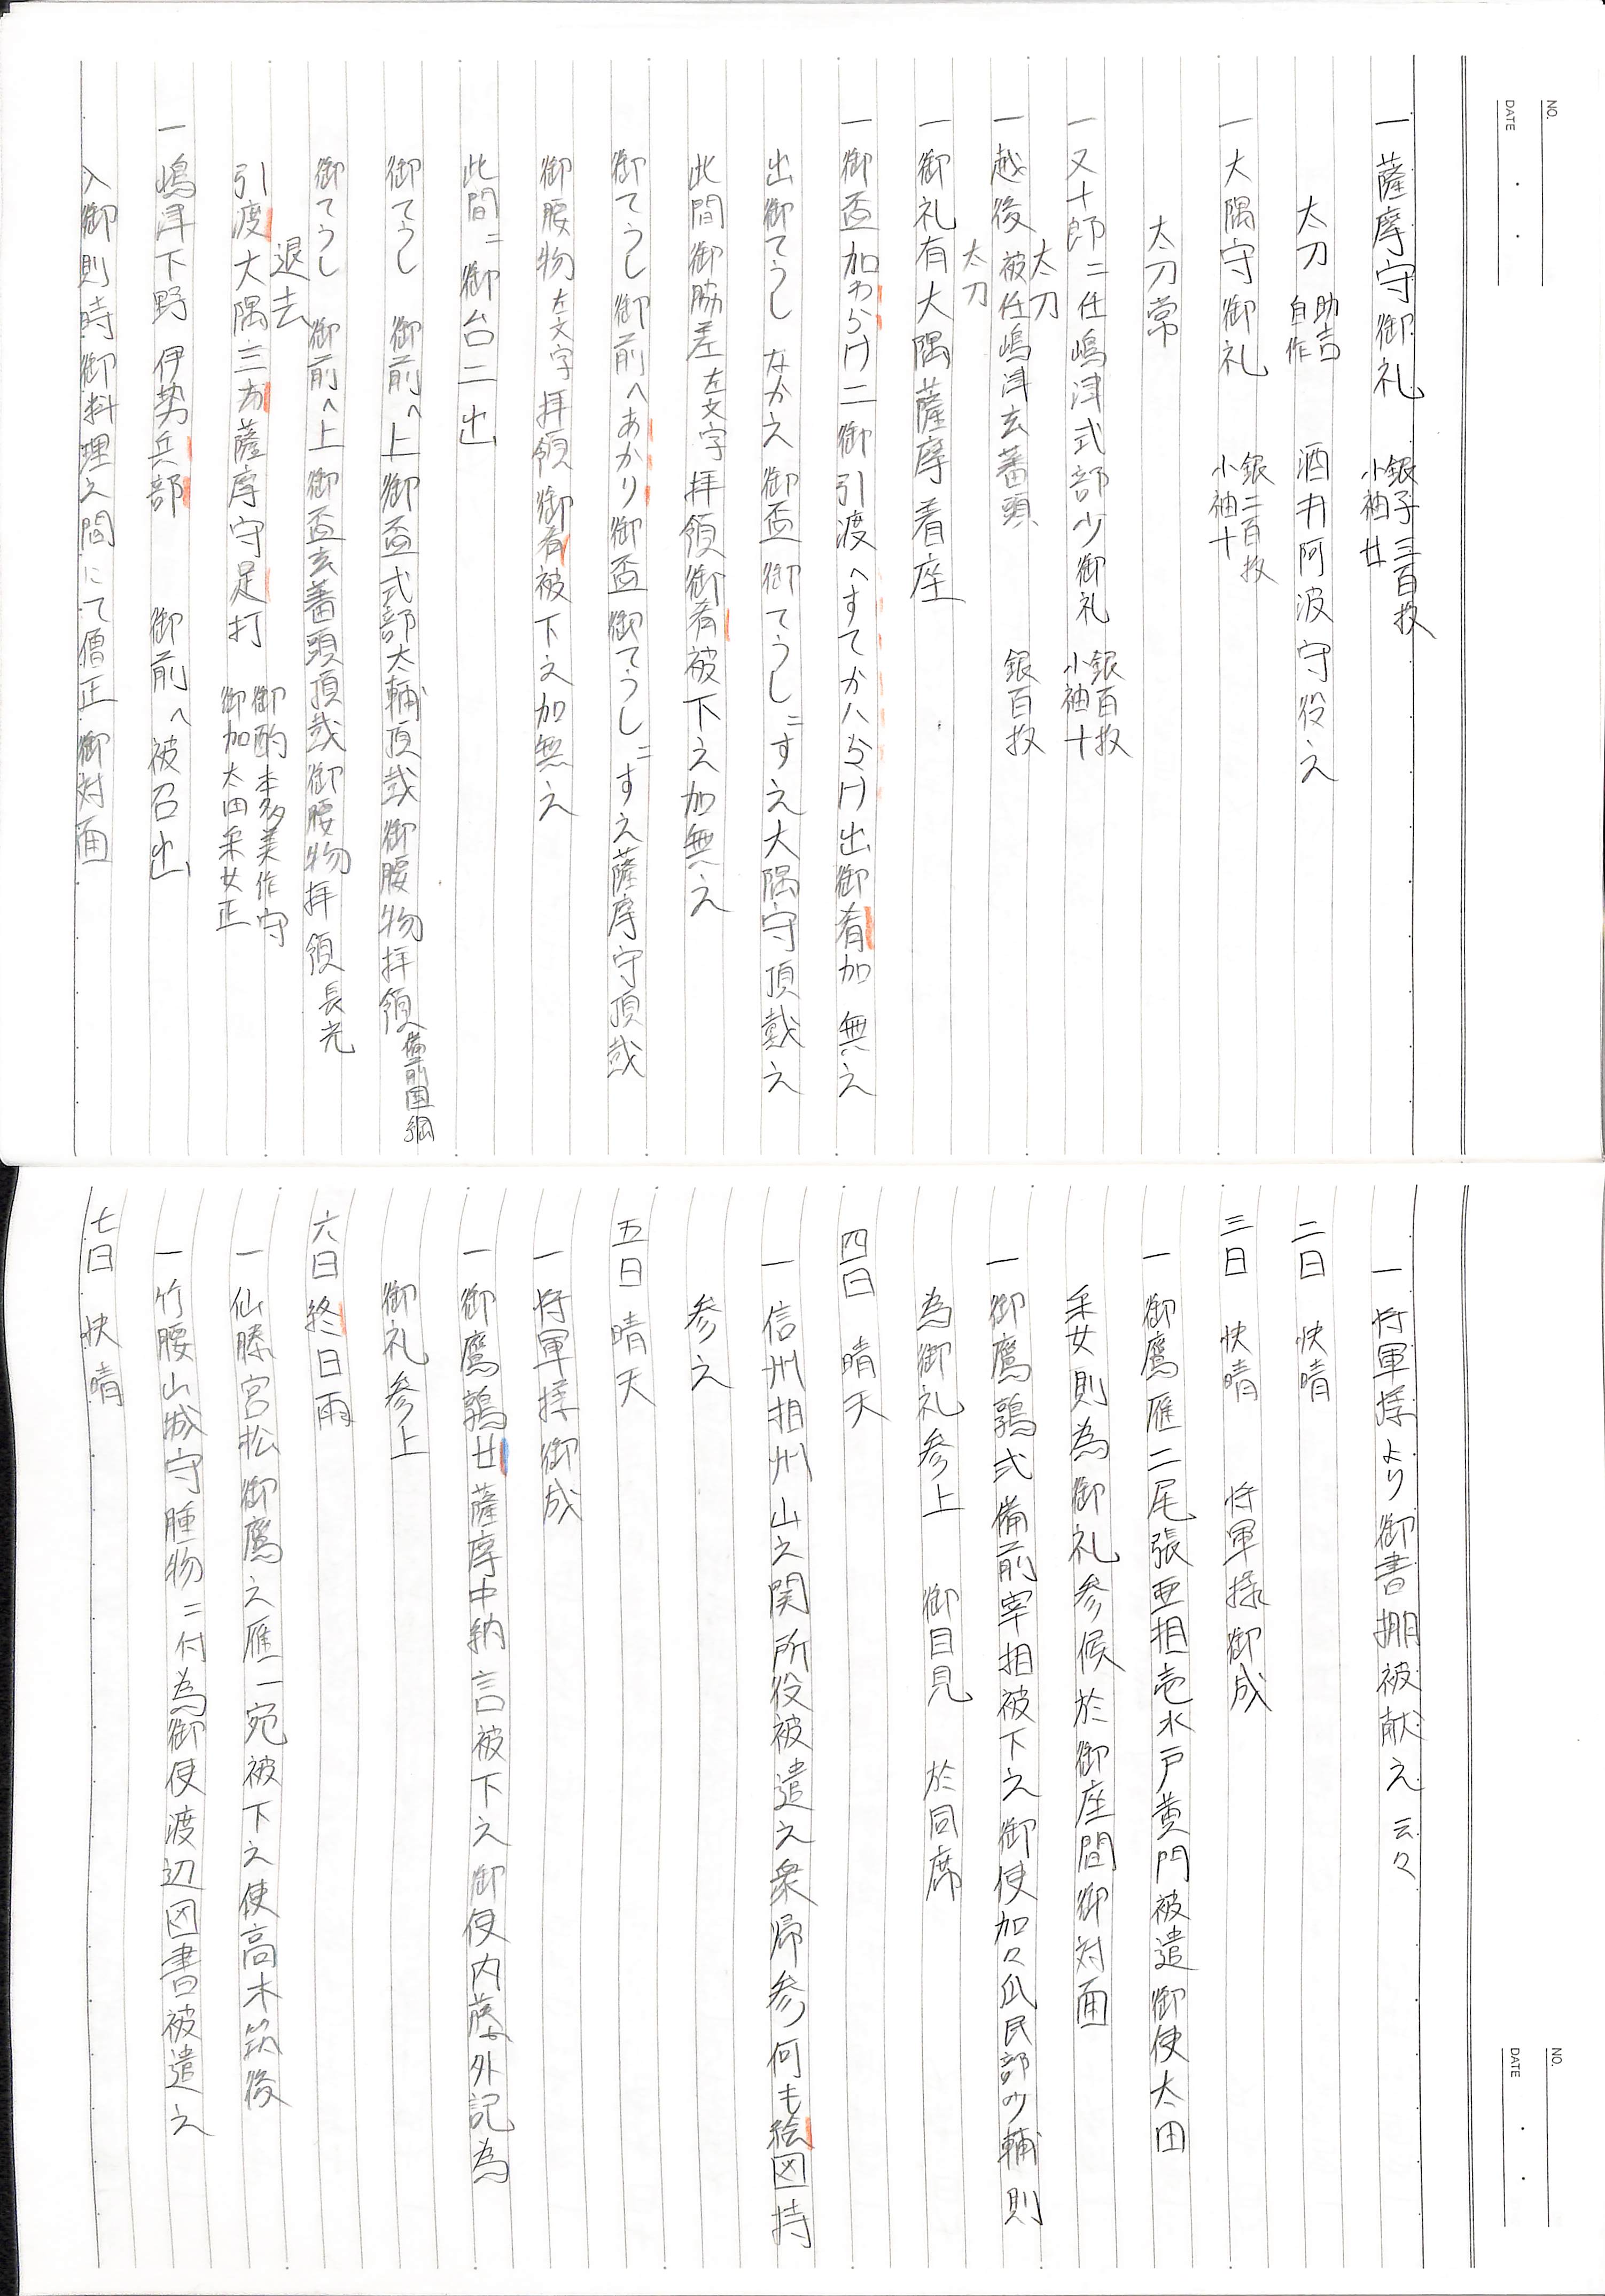 NO.
DATE
一 薩摩守御礼 銀子三百枚 小袖廿
太刀 助吉 自作 酒井阿波守役之
一 大隅守御礼 銀二百枚 小袖十
太刀常
一 又十郎ニ任嶋津式部少御礼 銀百枚 小袖十
太刀
一 越後被任嶋津玄蕃頭 銀百枚
太刀
一 御礼有大隅薩摩着座
一 御盃加わらけ二御引渡へすてかハらけ出御肴加無之
出御てうしなかえ御盃御てうしニすえ大隅守頂戴之
此間御脇差左文字拝領御肴被下之加無之
御てうし御前へあかり御盃御てうしニすえ薩摩守頂戴
御腰物左文字拝領御肴被下之加無之
此間ニ御台二出
御てうし御前へ上御盃式部太輔頂戴御腰物拝領備前国綱
御てうし御前へ上御盃玄蕃頭頂戴御腰物拝領長光
退去
引渡大隅三方薩摩守足打 御酌本多美作守 御加太田采女正
一 嶋津下野 伊勢兵部 御前へ被召出
入御則時御料理之間にて僧正御対面
NO.
DATE
一 将軍様より御書棚被献之云々
二日 快晴
三日 快晴 将軍様御成
一 御鷹雁二尾張亜相壱水戸黄門被遣御使太田
采女則為御礼参候於御座間御対面
一 御鷹鶉弐備前宰相被下之御使加々爪民部少輔則
為御礼参上 御目見 於同席
四日 晴天
一 信州相州山之関所役被遣之衆帰参何も絵図持
参之
五日 晴天
一 将軍様御成
一 御鷹鶉廿薩摩中納言被下之御使内藤外記為
御礼参上
六日 終日雨
一 仙勝宮松御鷹之雁一宛被下之使高木筑後
一 竹腰山城守腫物ニ付為御使渡辺図書被遣之
七日 快晴